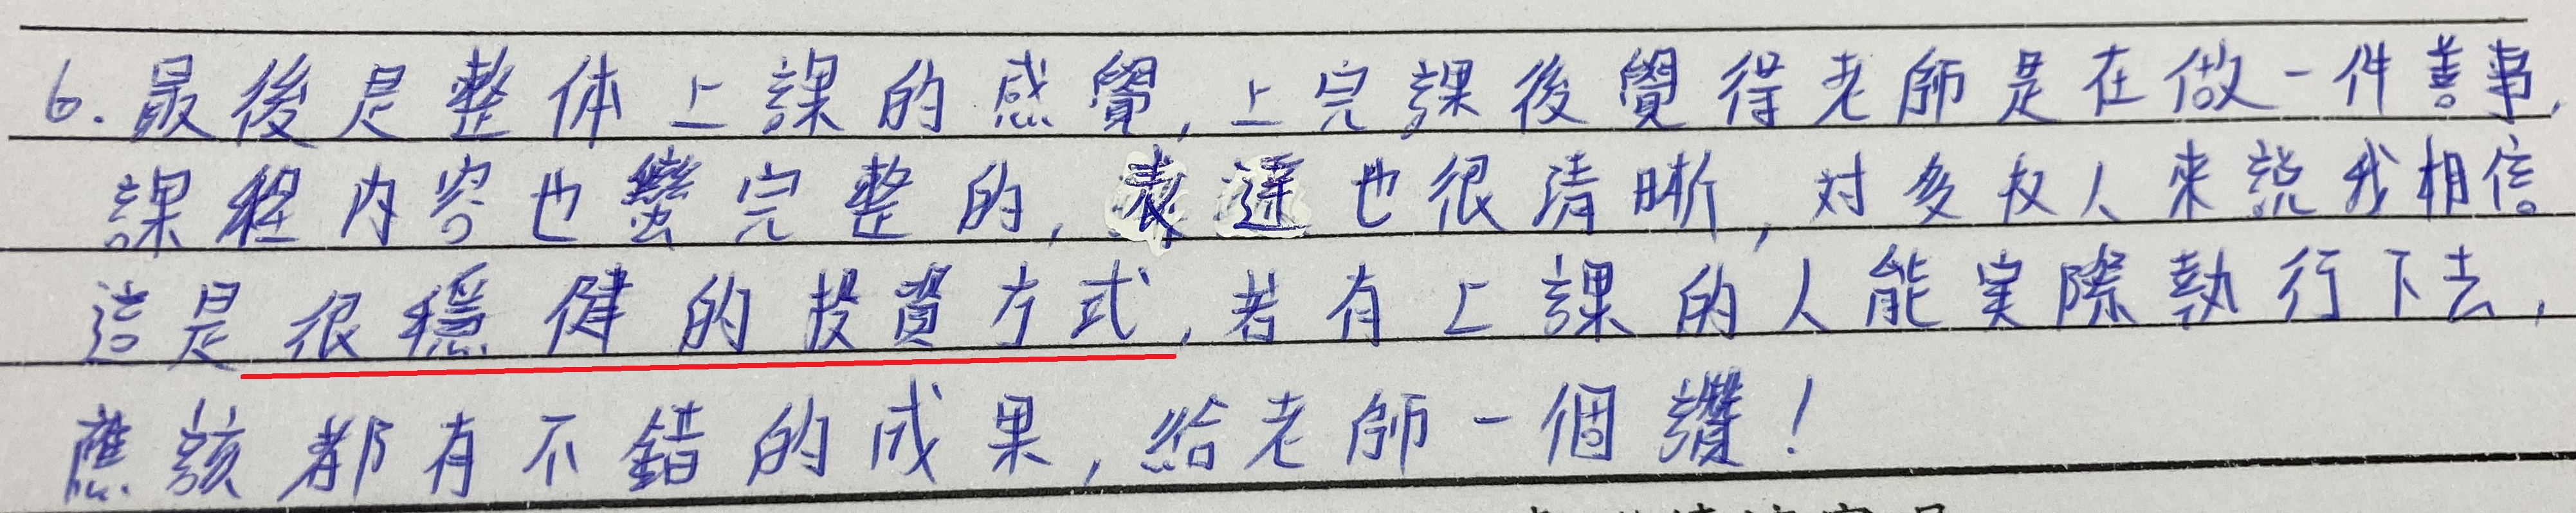 6. 最後是整体上課的感覺, 上完課後覺得老師是在做一件善事,
課程内容也蠻完整的, 表達也很清晰, 对多数人來說我相信
這是很穩健的投資方式, 若有上課的人能実際執行下去,
應該都有不錯的成果, 給老師一個讚!